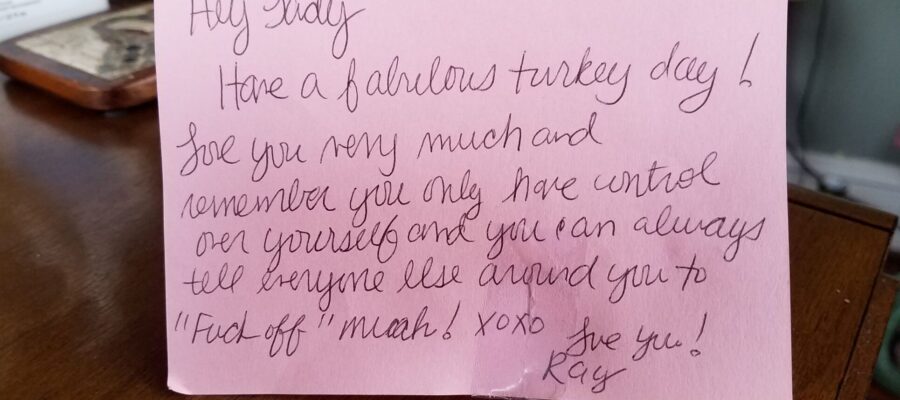 Hey Lady
Have a fabulous turkey day!
Love you very much and
remember you only have control
over yourself and you can always
tell everyone else around you to
"Fuck off" muah! xoxo
Love you!
Ray